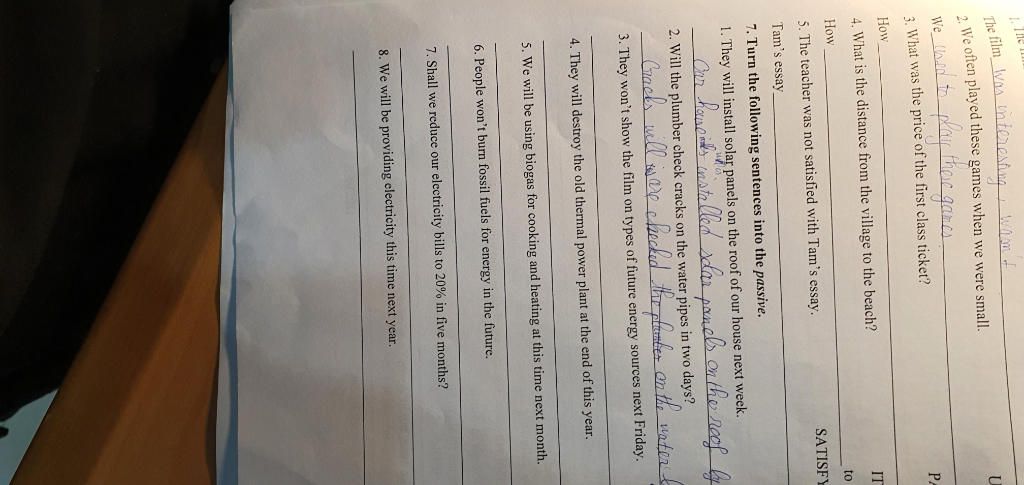 The film was interesting, wasn't
2. We often played these games when we were small. U
We used to play these games.
3. What was the price of the first class ticket? PA
How
4. What is the distance from the village to the beach? IT
How to
5. The teacher was not satisfied with Tam's essay. SATISFY
Tam's essay
7. Turn the following sentences into the passive.
1. They will install solar panels on the roof of our house next week.
Our house installed solar panels on the roof by
2. Will the plumber check cracks on the water pipes in two days?
Cracks will are checked the plumber on the water
3. They won't show the film on types of future energy sources next Friday.
4. They will destroy the old thermal power plant at the end of this year.
5. We will be using biogas for cooking and heating at this time next month.
6. People won't burn fossil fuels for energy in the future.
7. Shall we reduce our electricity bills to 20% in five months?
8. We will be providing electricity this time next year.